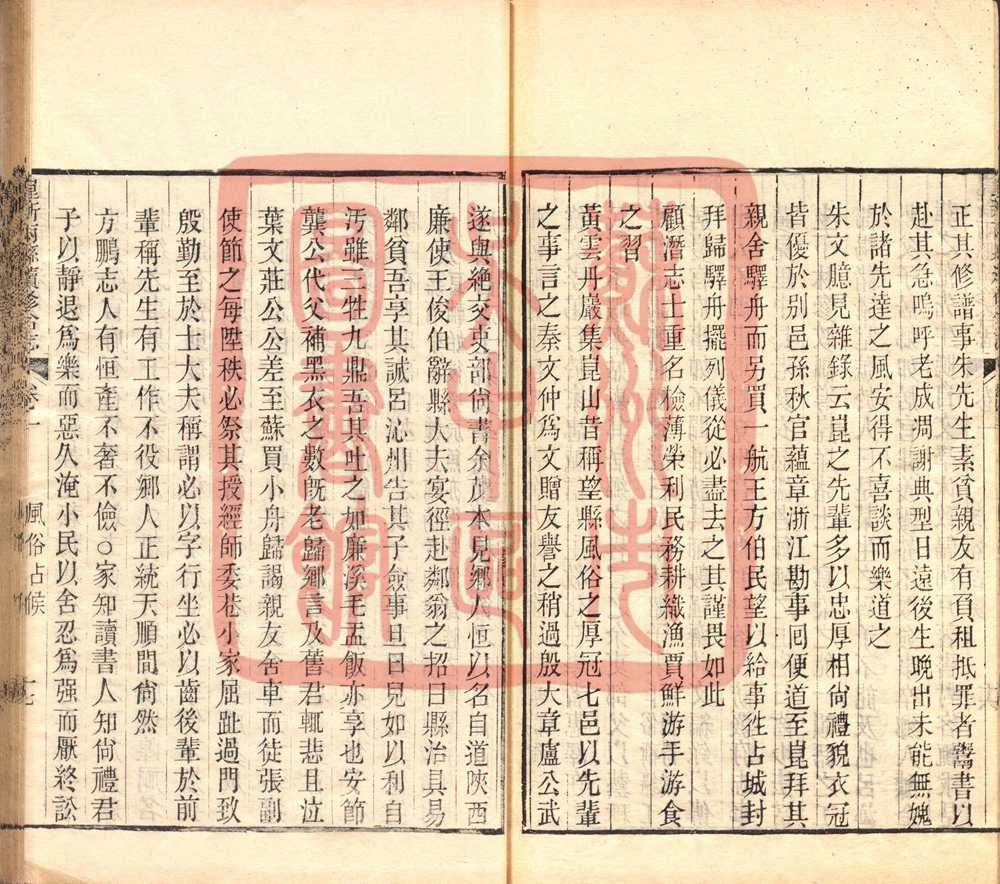 正其修譜事朱先生素貧親友有負租抵罪者鬻書以
赴其急嗚呼老成凋謝典型日遠後生晚出未能無媿
於諸先達之風安得不喜談而樂道之
朱文臆見雜錄云崑之先輩多以忠厚相尙禮貌衣冠
皆優於别邑孫秋官蘊章浙江勘事囘便道至崑拜其
親舍驛舟而另買一航王方伯民望以給事徃占城封
拜歸驛舟擺列儀從必盡去之其謹畏如此
顧潛志士重名檢薄榮利民務耕織漁賈鮮游手游食
之習
黃雲丹巖集崑山昔稱望縣風俗之厚冠七邑以先輩
之事言之秦文仲爲文贈友譽之稍過殷大章盧公武
遂與絕交吏部尙書余茂本見鄉人恒以名自道陜西
廉使王俊伯辭縣大夫宴徑赴鄰翁之招曰縣治具易
鄰貧吾享其誠呂沁州告其子僉事旦曰兒如以利自
汚雖一牲九鼎吾其吐之如廉溪毛盂飯亦享也安節
龔公代父補黑衣之數旣老歸鄉言及舊君輒悲且泣
葉文莊公公差至蘇買小舟歸謁親友舍車而徒張副
使節之每陞秩必祭其授經師委巷小家屈趾過門致
殷勤至於士大夫稱謂必以字行坐必以齒後輩於前
輩稱先生有工作不役鄉人正統天順間尙然
方鵬志人有恒產不奢不儉○家知讀書人知尙禮君
子以靜退爲樂而惡久淹小民以舍忍爲强而厭終訟
崑新兩縣續修合志
卷一
風俗占候
蘇州市
立中區
圖書館